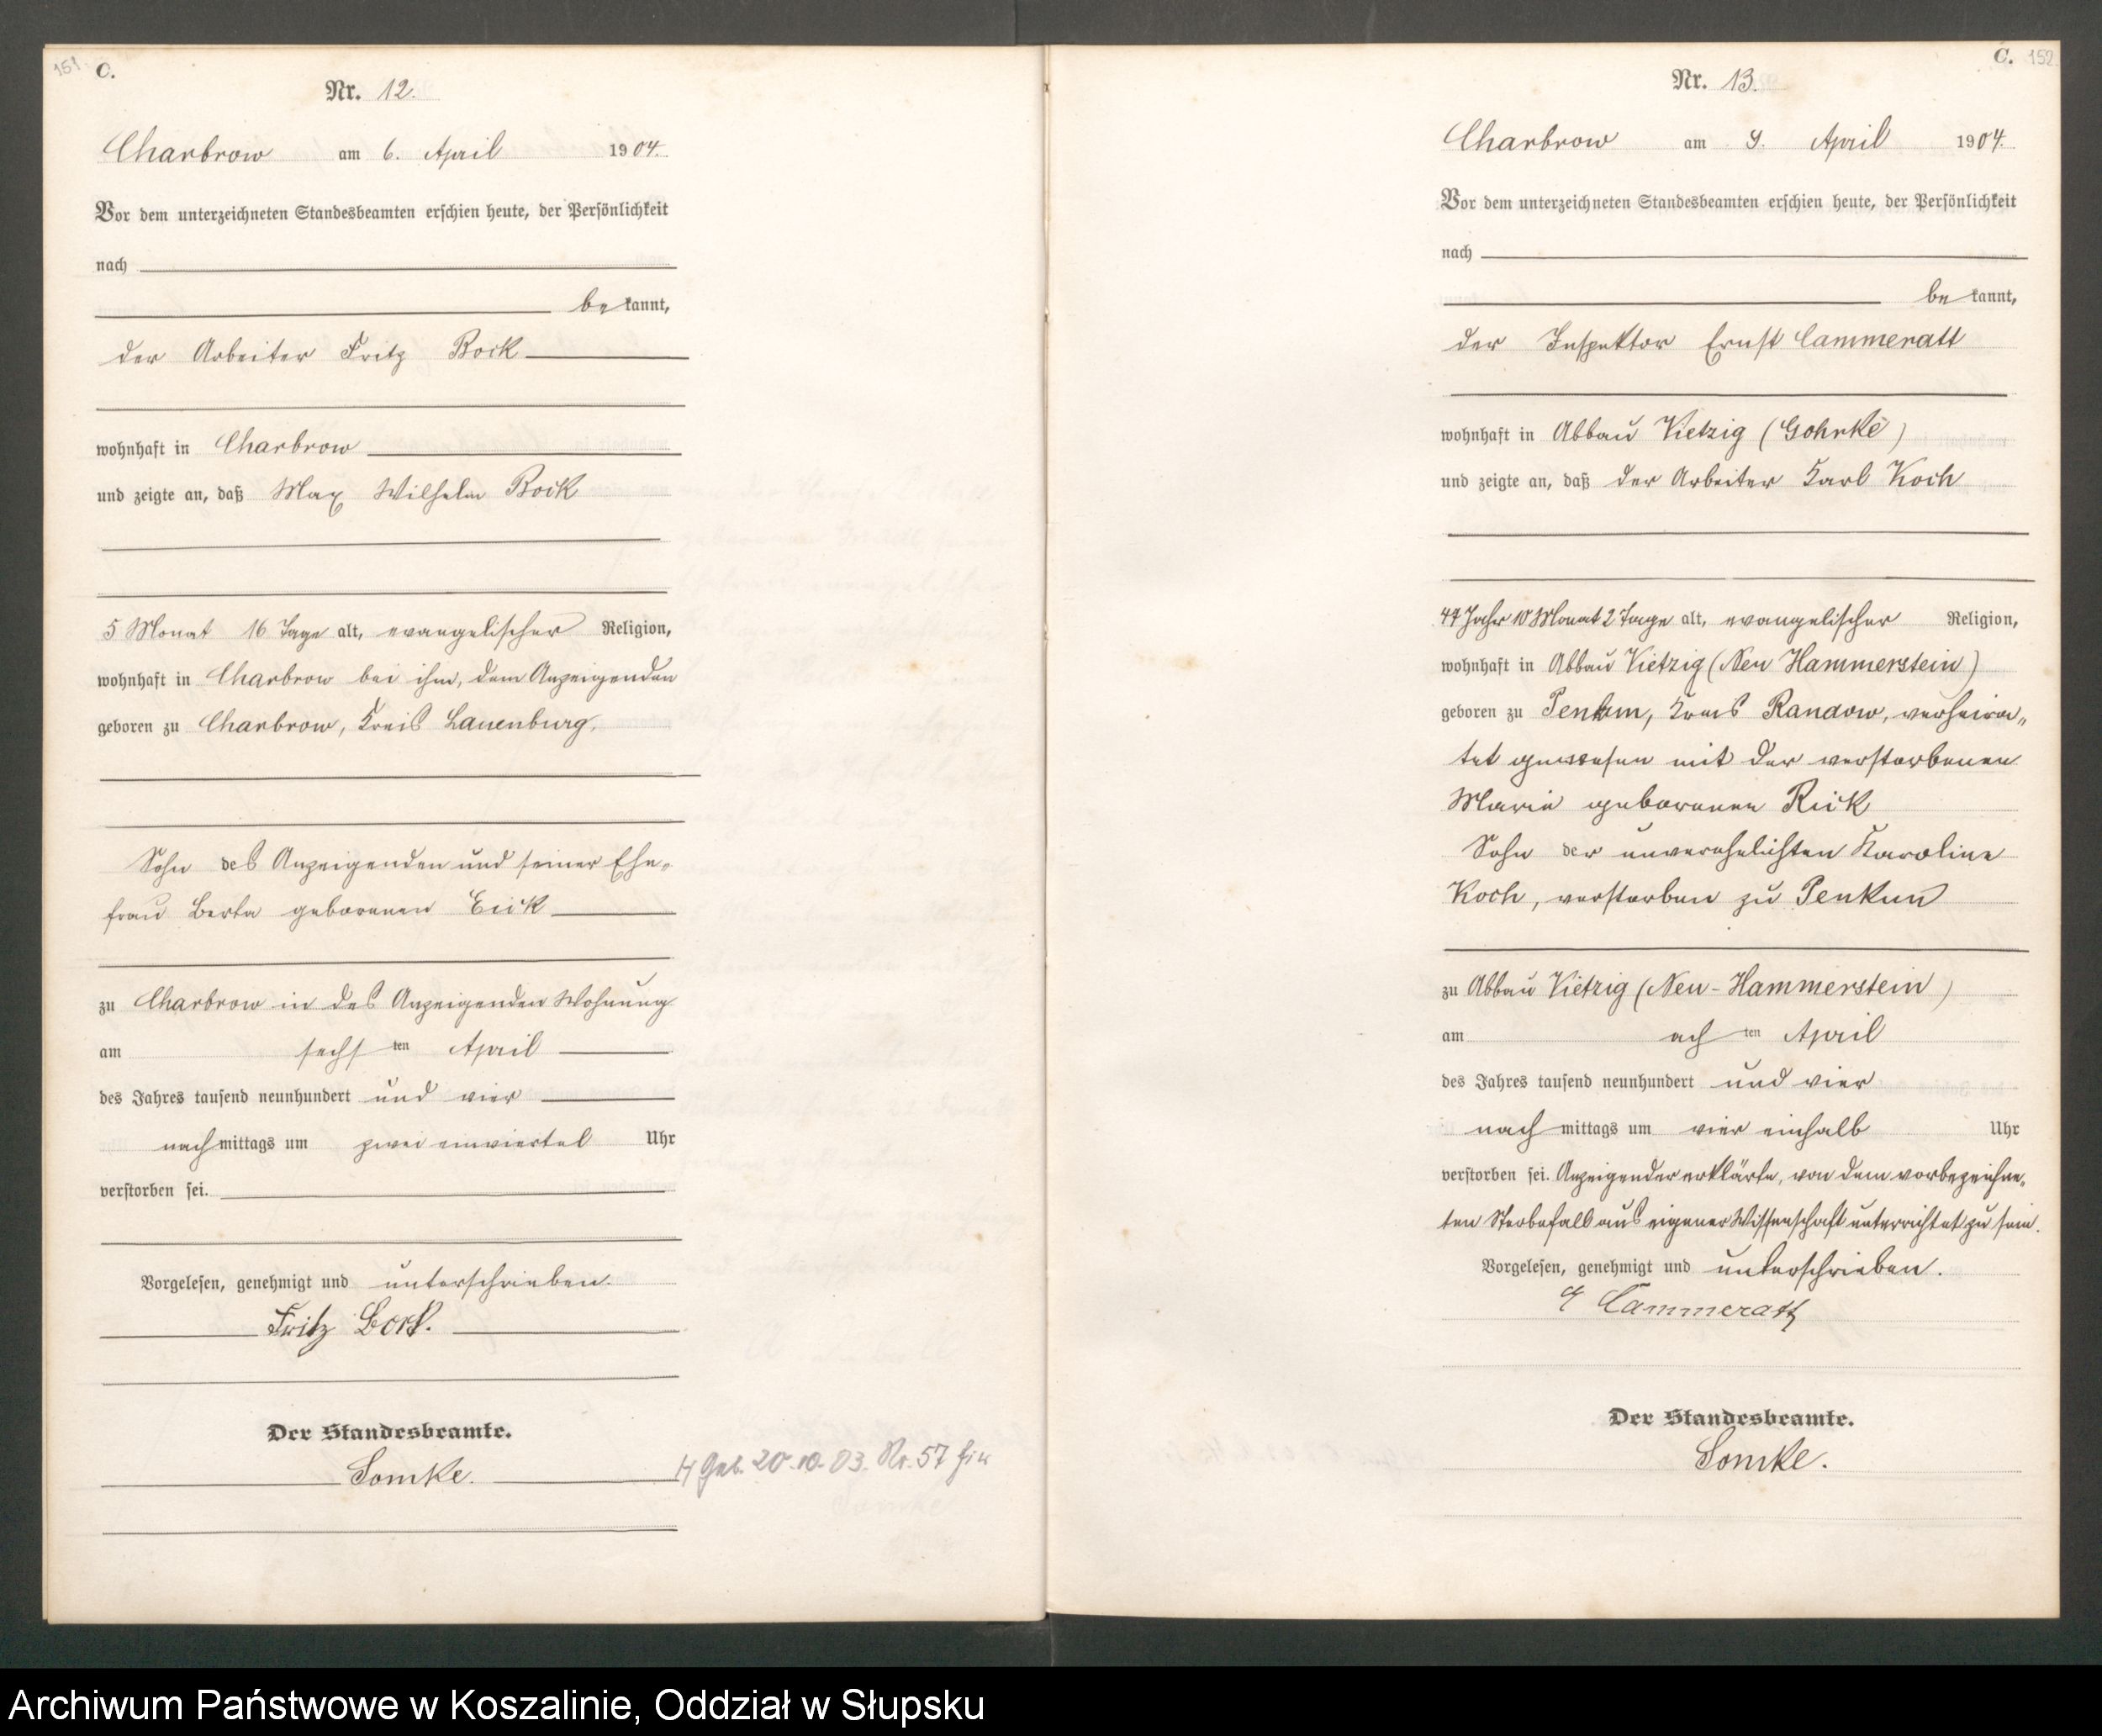 151.
C.
Nr. 12.
Charbrow am 6. April 1904.
Vor dem unterzeichneten Standesbeamten erschien heute, der Persönlichkeit
nach
be kannt,
der Arbeiter Fritz Bock
wohnhaft in Charbrow
und zeigte an, daß Max Wilhelm Bock
5 Monat 16 Tage alt, evangelischer Religion,
wohnhaft in Charbrow bei ihm, dem Anzeigenden
geboren zu Charbrow, Kreis Lauenburg.
Sohn des Anzeigenden und seiner Ehe-
frau Berta geborenen Eick
zu Charbrow in des Anzeigenden Wohnung
am sechs ten April
des Jahres tausend neunhundert und vier
nach mittags um zwei einviertel Uhr
verstorben sei.
Vorgelesen, genehmigt und unterschrieben.
Fritz Bock.
Der Standesbeamte.
Lomke.
Geb. 20.10.03. Nr. 57
C. 152.
Nr. 13.
Charbrow am 9. April 1904.
Vor dem unterzeichneten Standesbeamten erschien heute, der Persönlichkeit
nach
be kannt,
der Inspektor Ernst Cammeratt
wohnhaft in Abbau Vietzig (Gohrke)
und zeigte an, daß der Arbeiter Karl Koch
47 Jahr 10 Monat 2 Tage alt, evangelischer Religion,
wohnhaft in Abbau Vietzig (Neu Hammerstein)
geboren zu Penkun, Kreis Randow, verheira-
tet gewesen mit der verstorbenen
Marie geborenen Rick
Sohn der unverehelichten Karoline
Koch, verstorben zu Penkun
zu Abbau Vietzig (Neu-Hammerstein)
am ach ten April
des Jahres tausend neunhundert und vier
nach mittags um vier einhalb Uhr
verstorben sei. Anzeigender erklärte, von dem vorbezeichne-
ten Sterbefall aus eigener Wissenschaft unterrichtet zu sein.
Vorgelesen, genehmigt und unterschrieben.
E Cammeratt
Der Standesbeamte.
Lomke.
Archiwum Państwowe w Koszalinie, Oddział w Słupsku